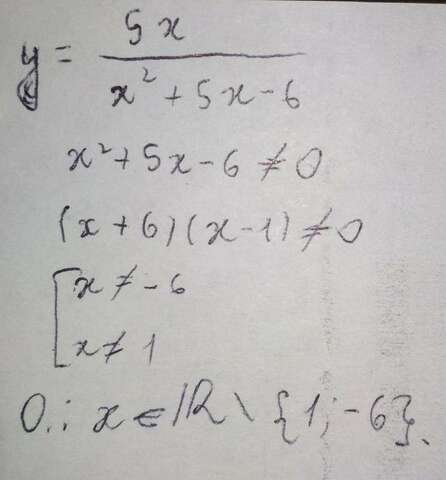 y = 5x / x² + 5x - 6
x² + 5x - 6 ≠ 0
(x + 6)(x - 1) ≠ 0
[ x ≠ - 6
x ≠ 1
O.: x ∈ ℝ \ {1; -6}.